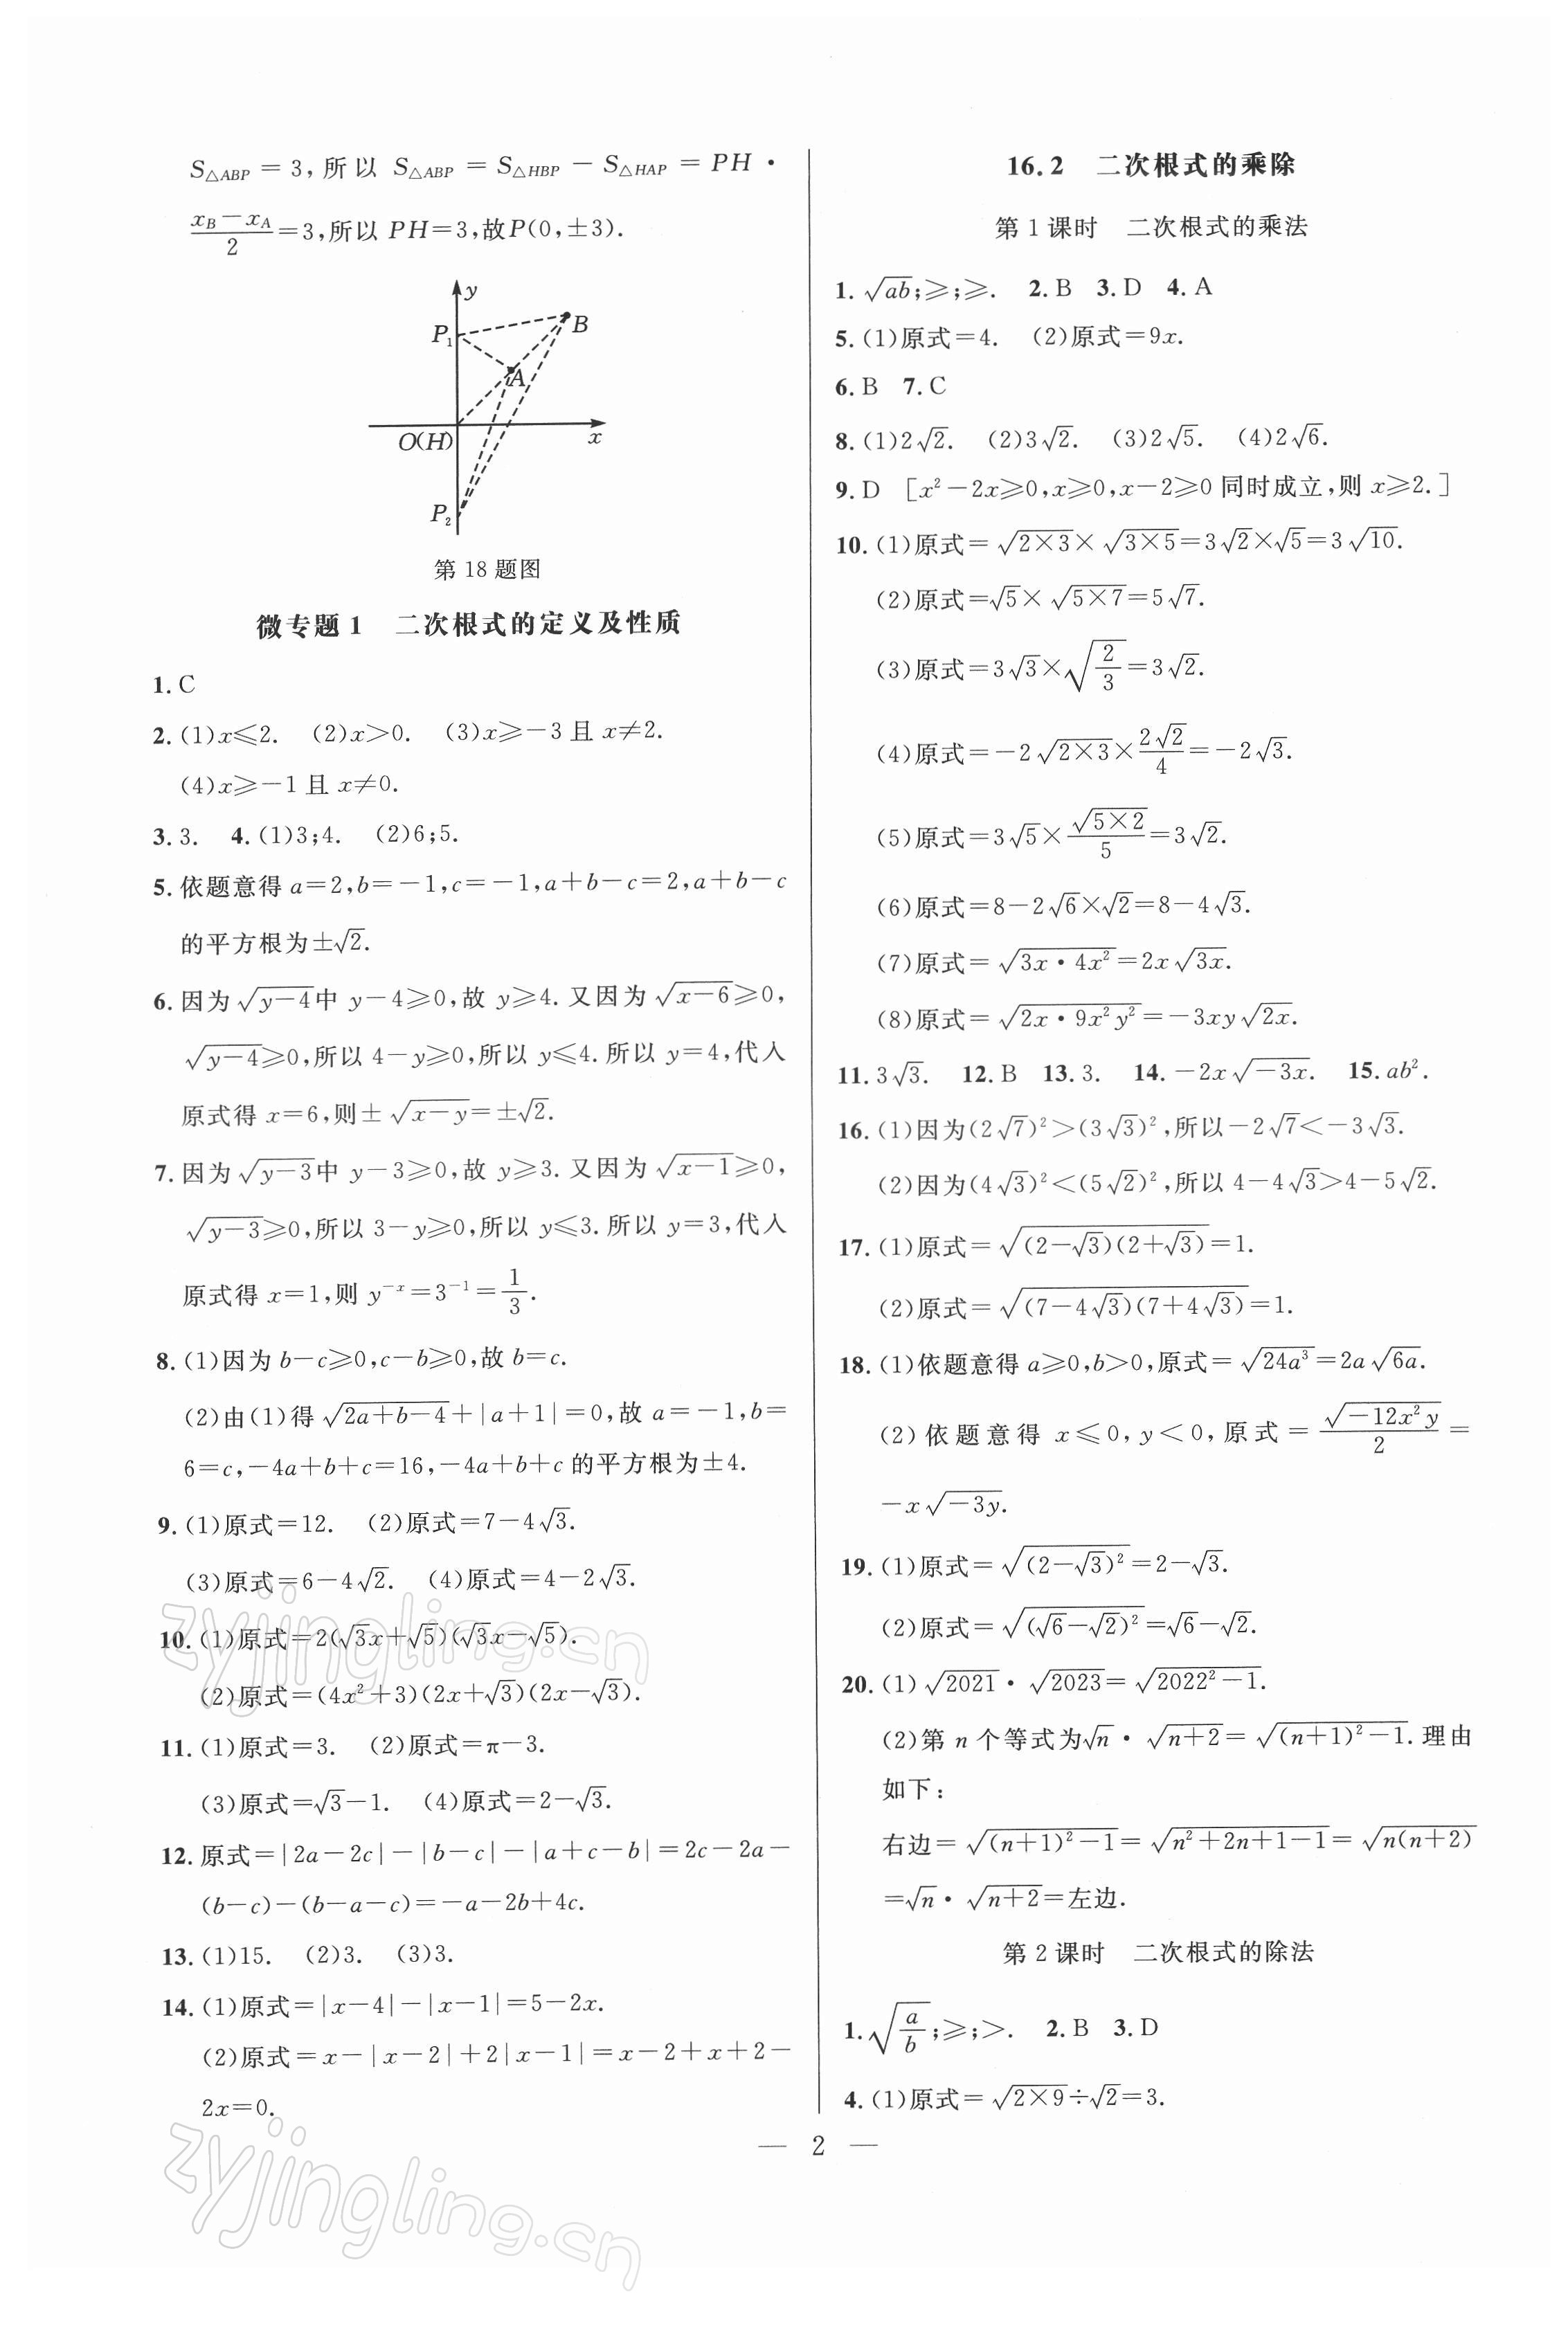 S△ABP=3,所以 S△ABP=S△HBP-S△HAP=PH·
(x_B-x_A)/2=3,所以PH=3,故P(0,±3).
y
P₁
B
A
O(H)
x
P₂
第18题图
微专题1 二次根式的定义及性质
1.C
2.(1)x≤2. (2)x>0. (3)x≥-3且x≠2.
(4)x≥-1且x≠0.
3.3. 4.(1)3;4. (2)6;5.
5.依题意得a=2,b=-1,c=-1,a+b-c=2,a+b-c
的平方根为±√2.
6.因为√(y-4)中y-4≥0,故y≥4.又因为√(x-6)≥0,
√(y-4)≥0,所以4-y≥0,所以y≤4.所以y=4,代入
原式得x=6,则±√(x-y)=±√2.
7.因为√(y-3)中y-3≥0,故y≥3.又因为√(x-1)≥0,
√(y-3)≥0,所以3-y≥0,所以y≤3.所以y=3,代入
原式得x=1,则y⁻ˣ=3⁻¹=1/3.
8.(1)因为b-c≥0,c-b≥0,故b=c.
(2)由(1)得√(2a+b-4)+|a+1|=0,故a=-1,b=
6=c,-4a+b+c=16,-4a+b+c的平方根为±4.
9.(1)原式=12. (2)原式=7-4√3.
(3)原式=6-4√2. (4)原式=4-2√3.
10.(1)原式=2(√3x+√5)(√3x-√5).
(2)原式=(4x²+3)(2x+√3)(2x-√3).
11.(1)原式=3. (2)原式=π-3.
(3)原式=√3-1. (4)原式=2-√3.
12.原式=|2a-2c|-|b-c|-|a+c-b|=2c-2a-
(b-c)-(b-a-c)=-a-2b+4c.
13.(1)15. (2)3. (3)3.
14.(1)原式=|x-4|-|x-1|=5-2x.
(2)原式=x-|x-2|+2|x-1|=x-2+x+2-
2x=0.
16.2 二次根式的乘除
第1课时 二次根式的乘法
1.√(ab);≥;≥. 2.B 3.D 4.A
5.(1)原式=4. (2)原式=9x.
6.B 7.C
8.(1)2√2. (2)3√2. (3)2√5. (4)2√6.
9.D [x²-2x≥0,x≥0,x-2≥0同时成立,则x≥2.]
10.(1)原式=√(2×3)×√(3×5)=3√2×√5=3√10.
(2)原式=√5×√(5×7)=5√7.
(3)原式=3√3×√(2/3)=3√2.
(4)原式=-2√(2×3)×2√2/4=-2√3.
(5)原式=3√5×√(5×2)/5=3√2.
(6)原式=8-2√6×√2=8-4√3.
(7)原式=√(3x·4x²)=2x√(3x).
(8)原式=√(2x·9x²y²)=-3xy√(2x).
11.3√3. 12.B 13.3. 14.-2x√(-3x). 15.ab².
16.(1)因为(2√7)²>(3√3)²,所以-2√7<-3√3.
(2)因为(4√3)²<(5√2)²,所以4-4√3>4-5√2.
17.(1)原式=√((2-√3)(2+√3))=1.
(2)原式=√((7-4√3)(7+4√3))=1.
18.(1)依题意得a≥0,b>0,原式=√(24a³)=2a√(6a).
(2)依题意得x≤0,y<0,原式=√(-12x²y)/2=
-x√(-3y).
19.(1)原式=√((2-√3)²)=2-√3.
(2)原式=√((√6-√2)²)=√6-√2.
20.(1)√2021·√2023=√(2022²-1).
(2)第n个等式为√n·√(n+2)=√((n+1)²-1).理由
如下:
右边=√((n+1)²-1)=√(n²+2n+1-1)=√(n(n+2))
=√n·√(n+2)=左边.
第2课时 二次根式的除法
1.√(a/b);≥;>. 2.B 3.D
4.(1)原式=√(2×9)÷√2=3.
— 2 —
zyjingling.cn
zyjingling.cn